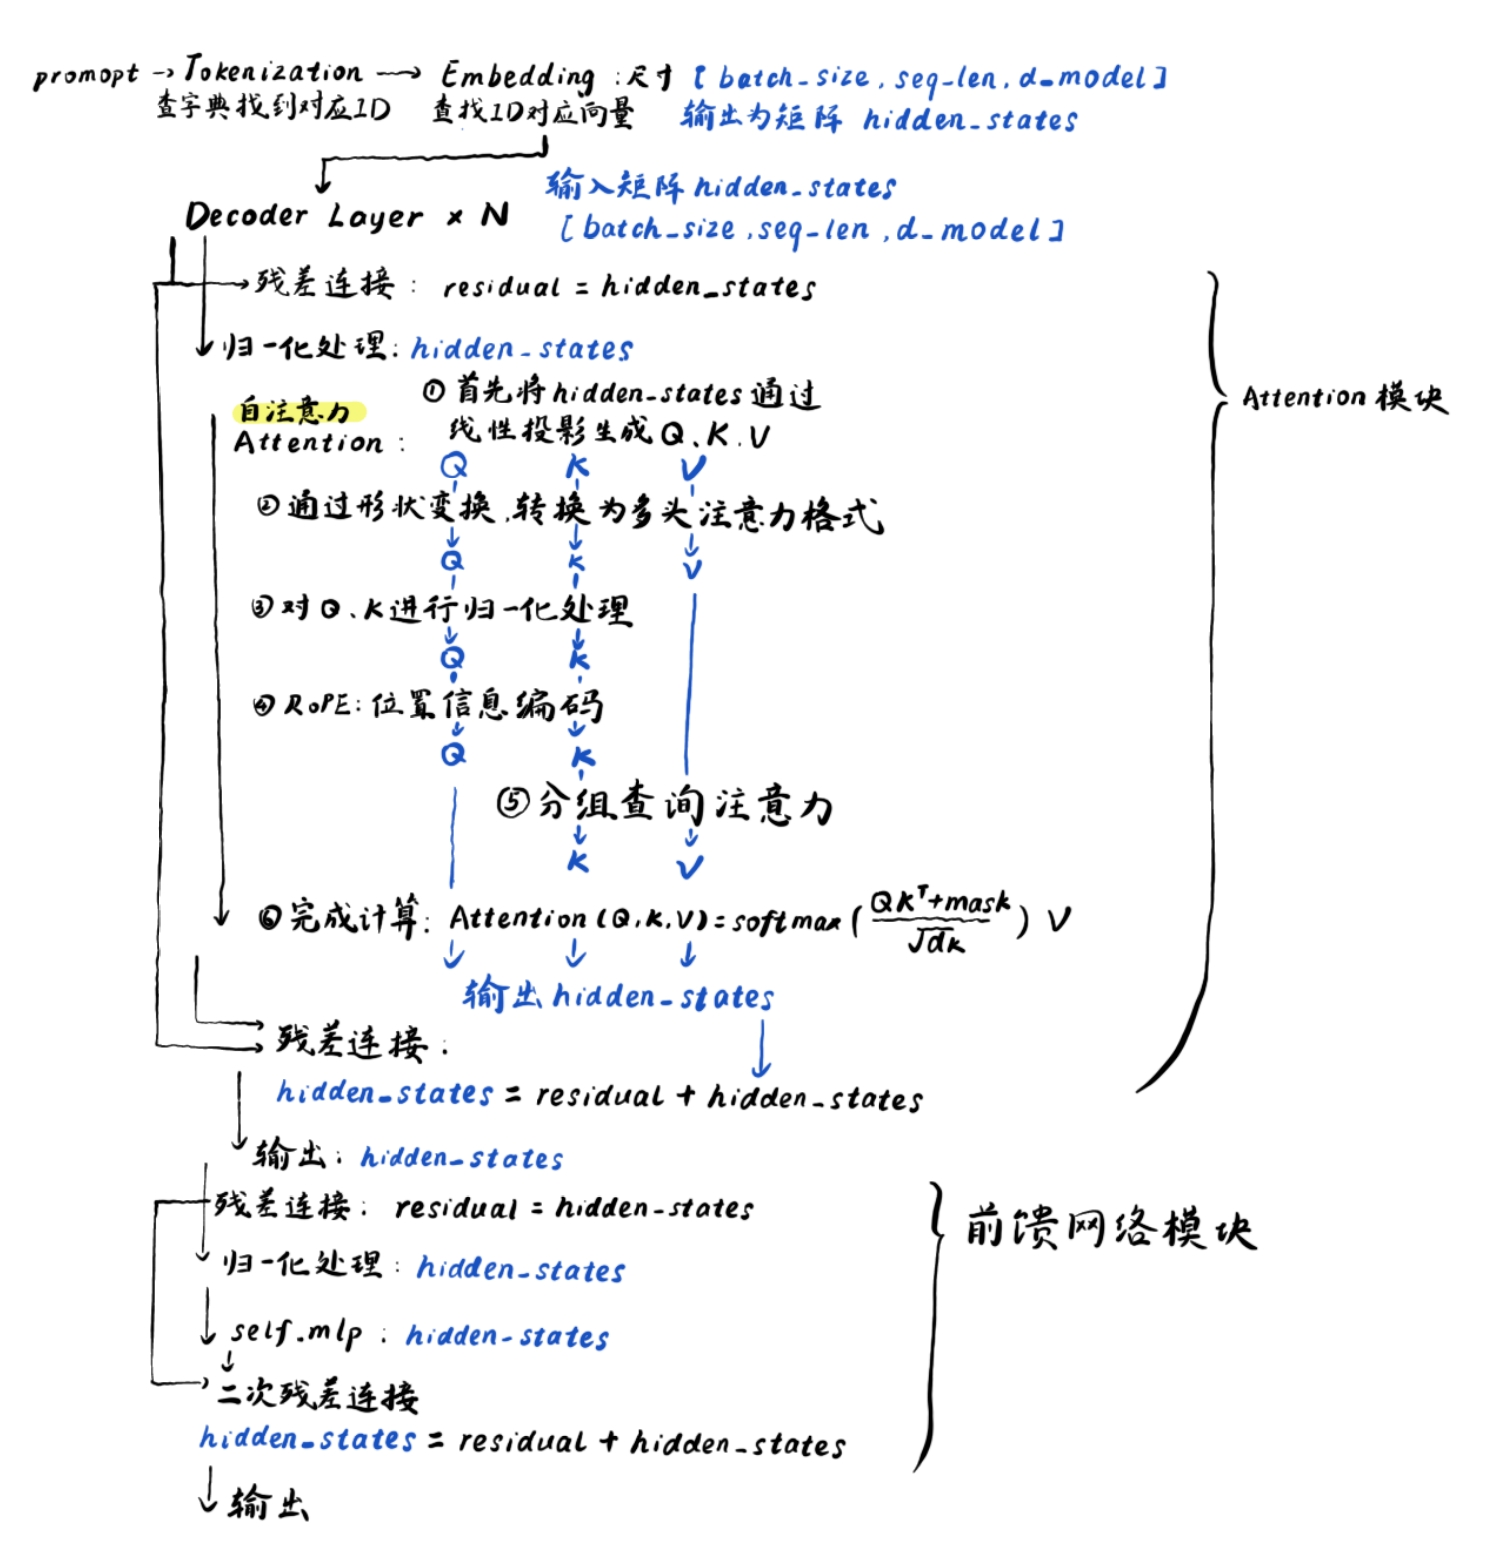 promopt → Tokenization → Embedding : 尺寸 [ batch_size , seq-len, d_model ]
查字典找到对应ID 查找ID对应向量 输出为矩阵 hidden_states
输入矩阵 hidden_states
Decoder Layer × N
[ batch_size , seq-len , d_model ]
残差连接 : residual = hidden_states
归一化处理 : hidden_states
① 首先将hidden-states通过
自注意力
线性投影生成Q、K、V
Attention :
Q K V
②通过形状变换,转换为多头注意力格式
Q K V
③对Q、K进行归一化处理
Q K
④ RoPE : 位置信息编码
Q K
⑤分组查询注意力
K V
⑥完成计算 : Attention (Q,K,V) = softmax ( QKᵀ+mask / √dk ) V
输出 hidden_states
残差连接 :
hidden_states = residual + hidden_states
Attention 模块
输出 : hidden_states
残差连接 : residual = hidden-states
归一化处理 : hidden_states
self.mlp : hidden-states
二次残差连接
hidden_states = residual + hidden_states
前馈网络模块
输出